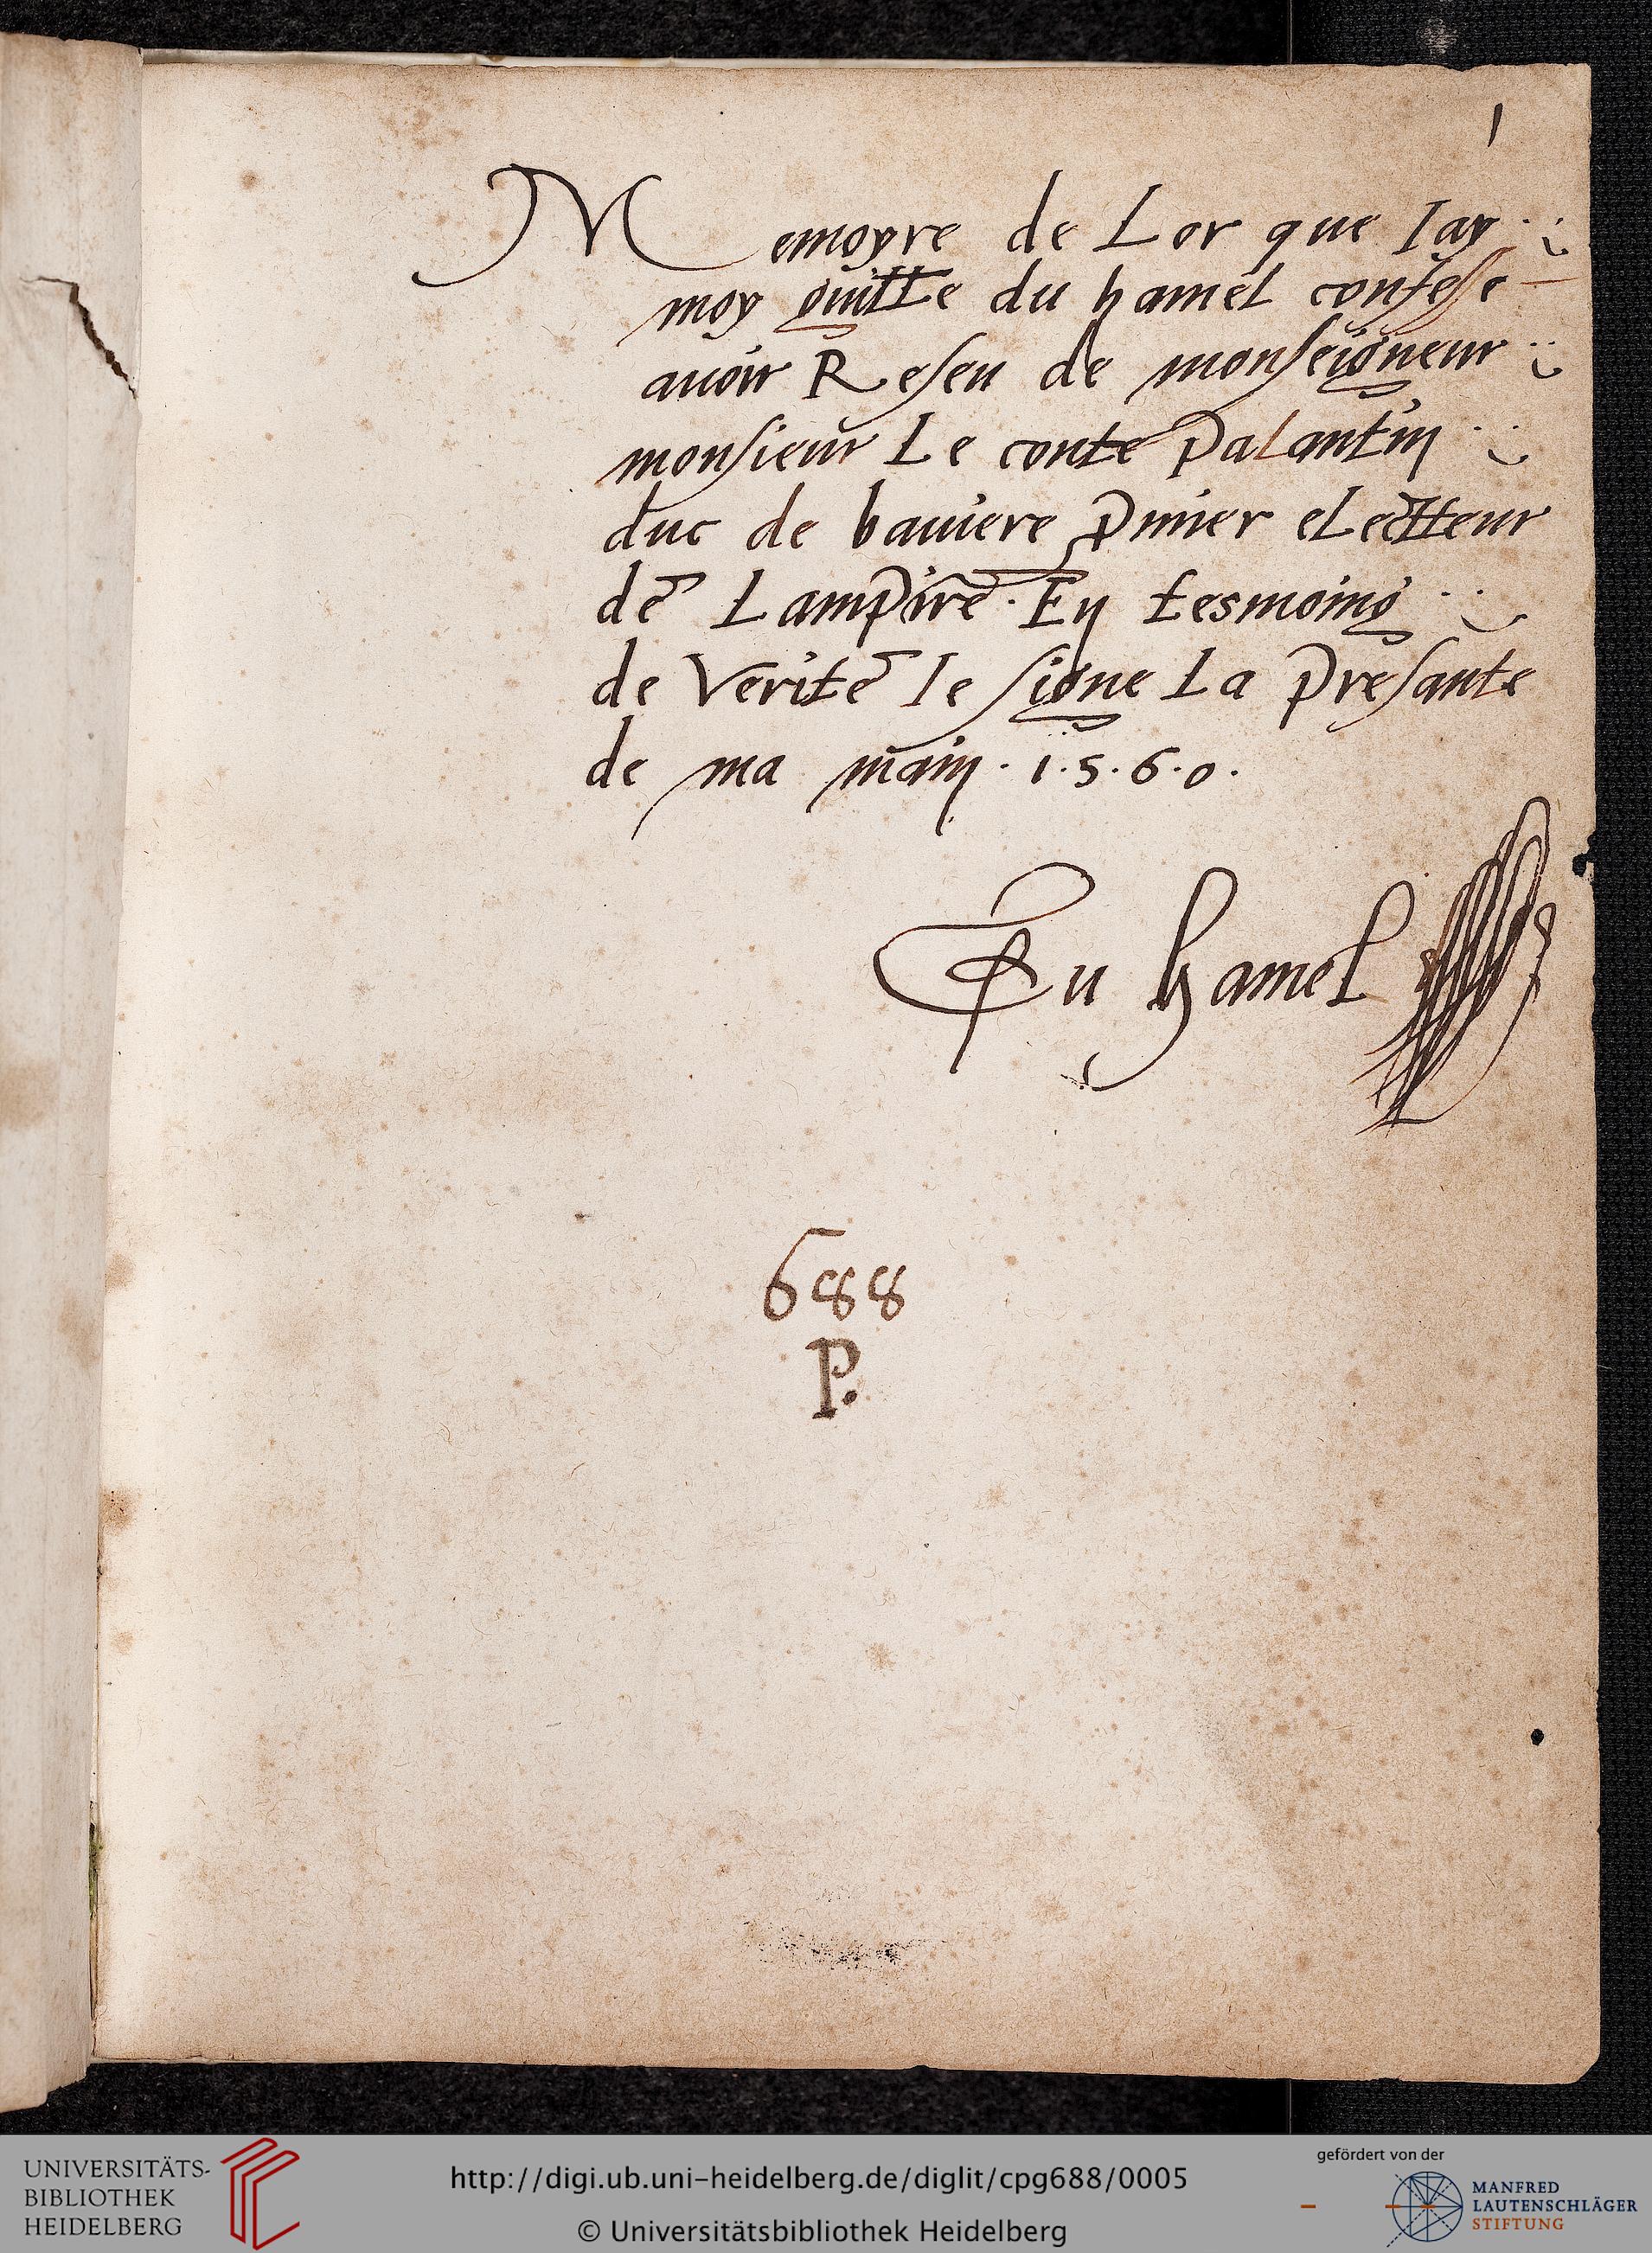 1
Memoyre de Lor que Iay
moy guitte du hamel confesse
auoir Reseu de monseigneur
monsieur Le conte palantin
duc de bauiere pmier eLectteur
de Lampire · En tesmoing
de Verite Ie signe La presante
de ma main · 1·5·6·0·
Du hamel
688
P.
UNIVERSITÄTS-
BIBLIOTHEK
HEIDELBERG
http://digi.ub.uni-heidelberg.de/diglit/cpg688/0005
© Universitätsbibliothek Heidelberg
gefördert von der
MANFRED
LAUTENSCHLÄGER
STIFTUNG